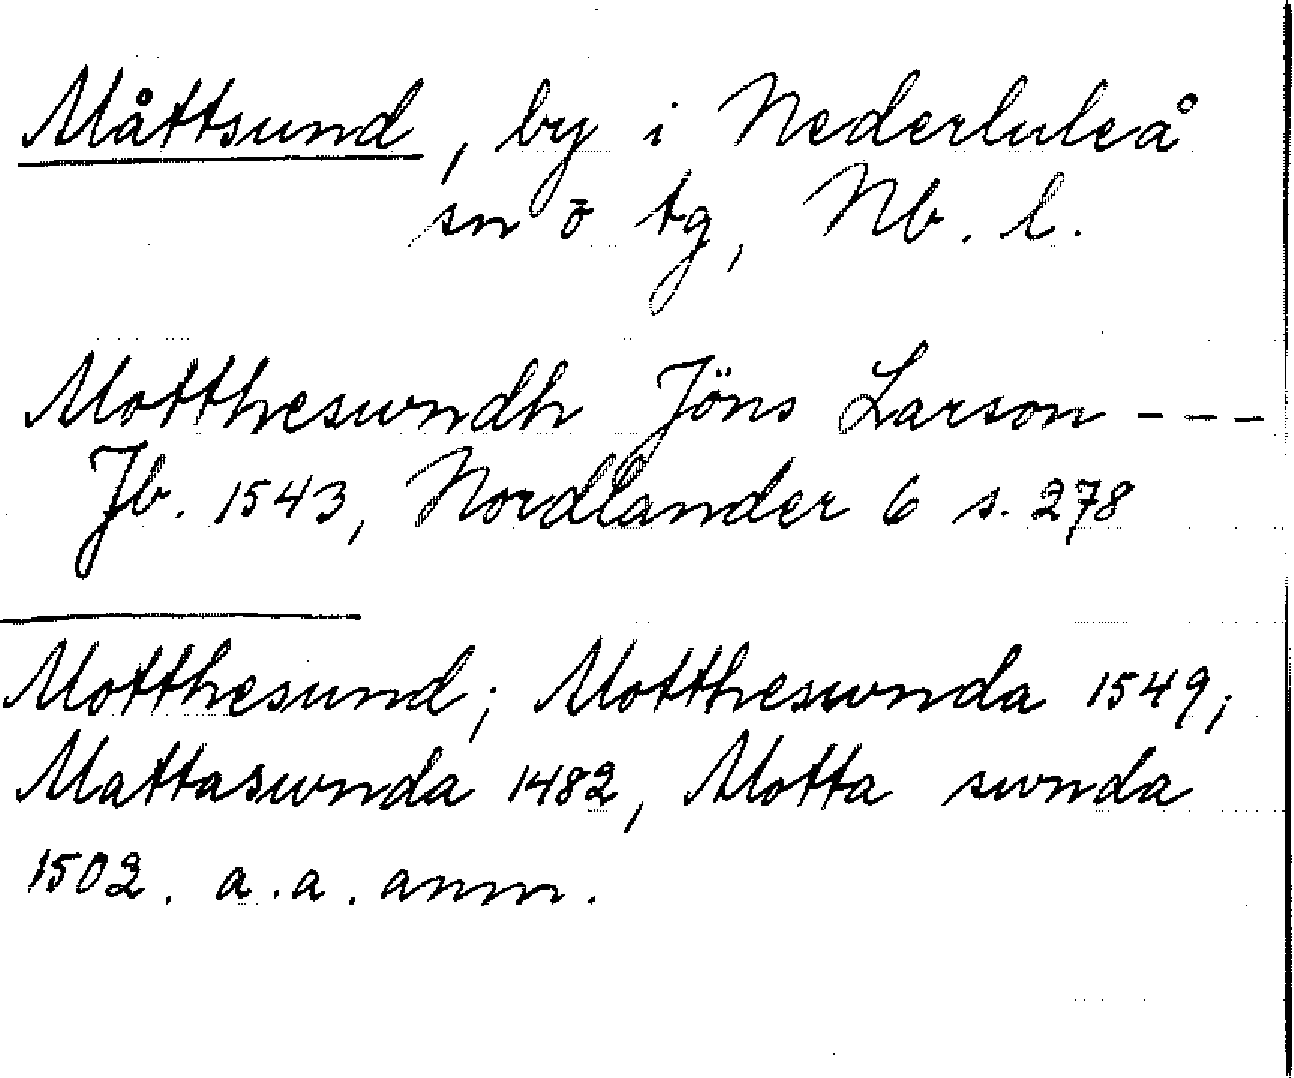 Måttsund, by i Nederluleå
sn o tg, Nb. l.
Mottheswndh Jöns Larson ---
Jb. 1543, Nordlander 6 s. 278
Motthesund; Mottheswnda 1549;
Mattaswnda 1482, Motta swnda
1502. a.a. anm.